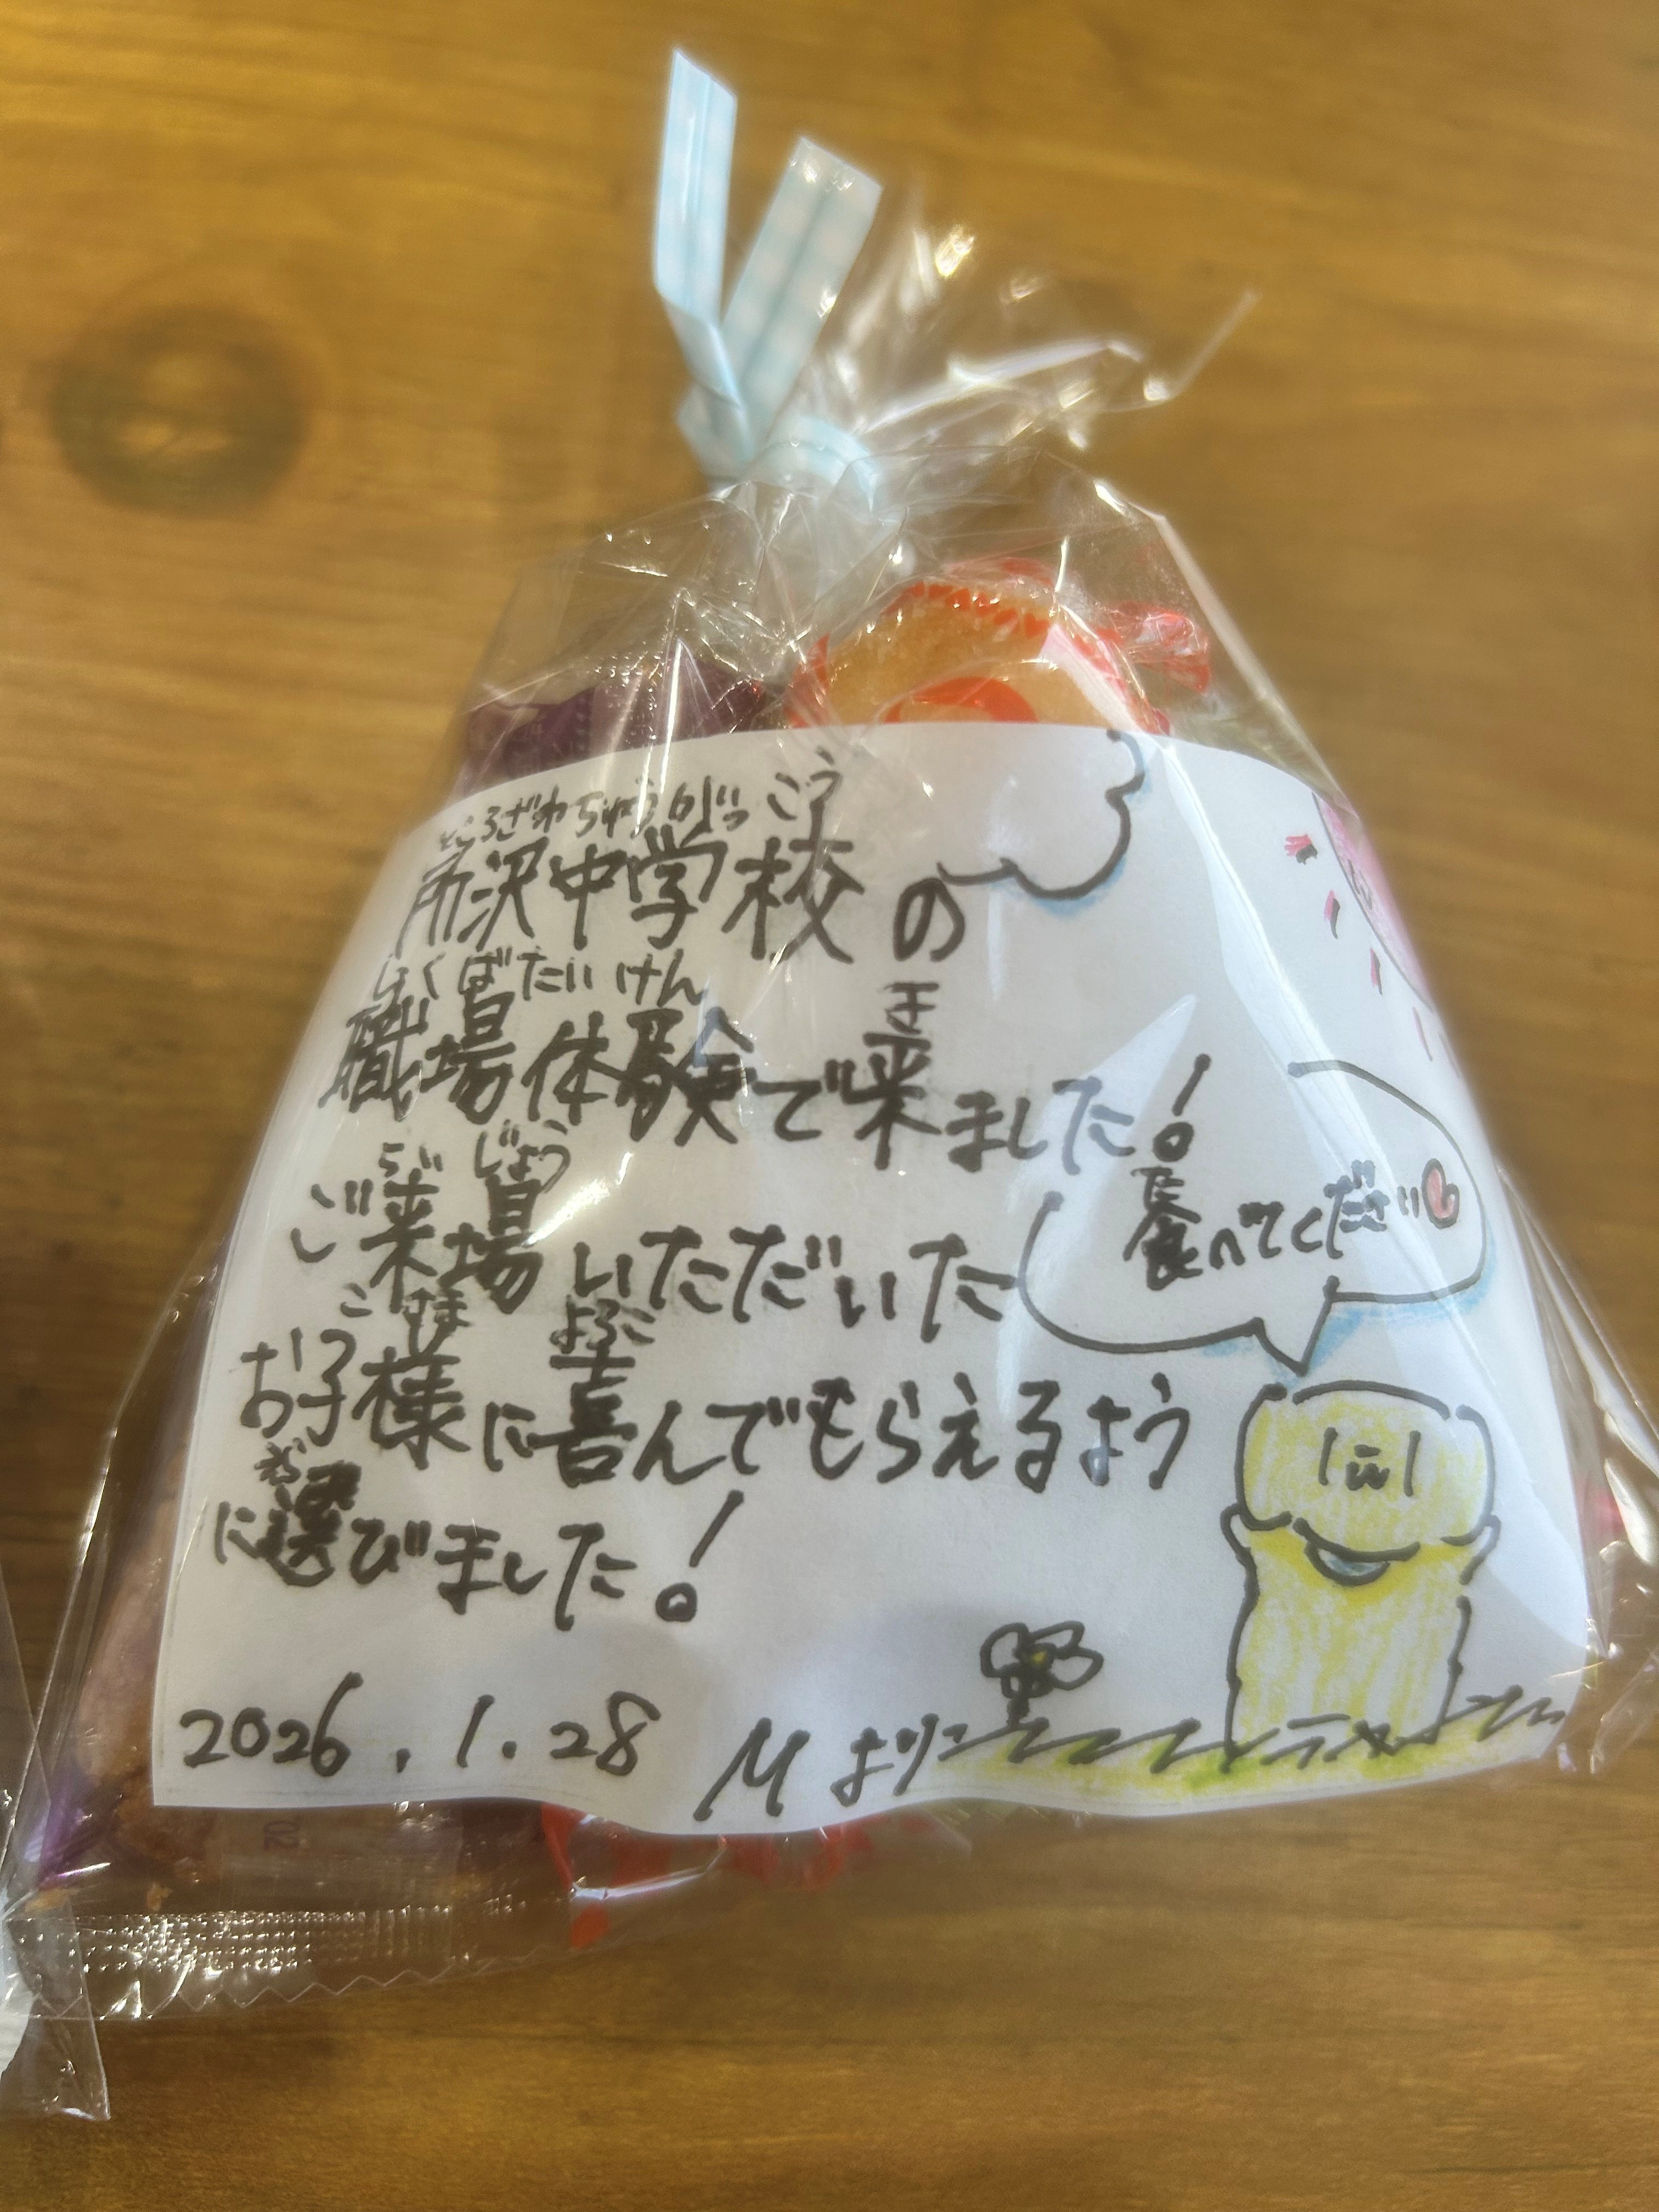 ところざわちゅうがっこう
所沢中学校の
しょくばたいけん き
職場体験で来ました!
らいじょう
ご来場いただいた
こさま よろこ
お子様に喜んでもらえるよう
に選びました!
た
食べてください
2026.1.28 Mより